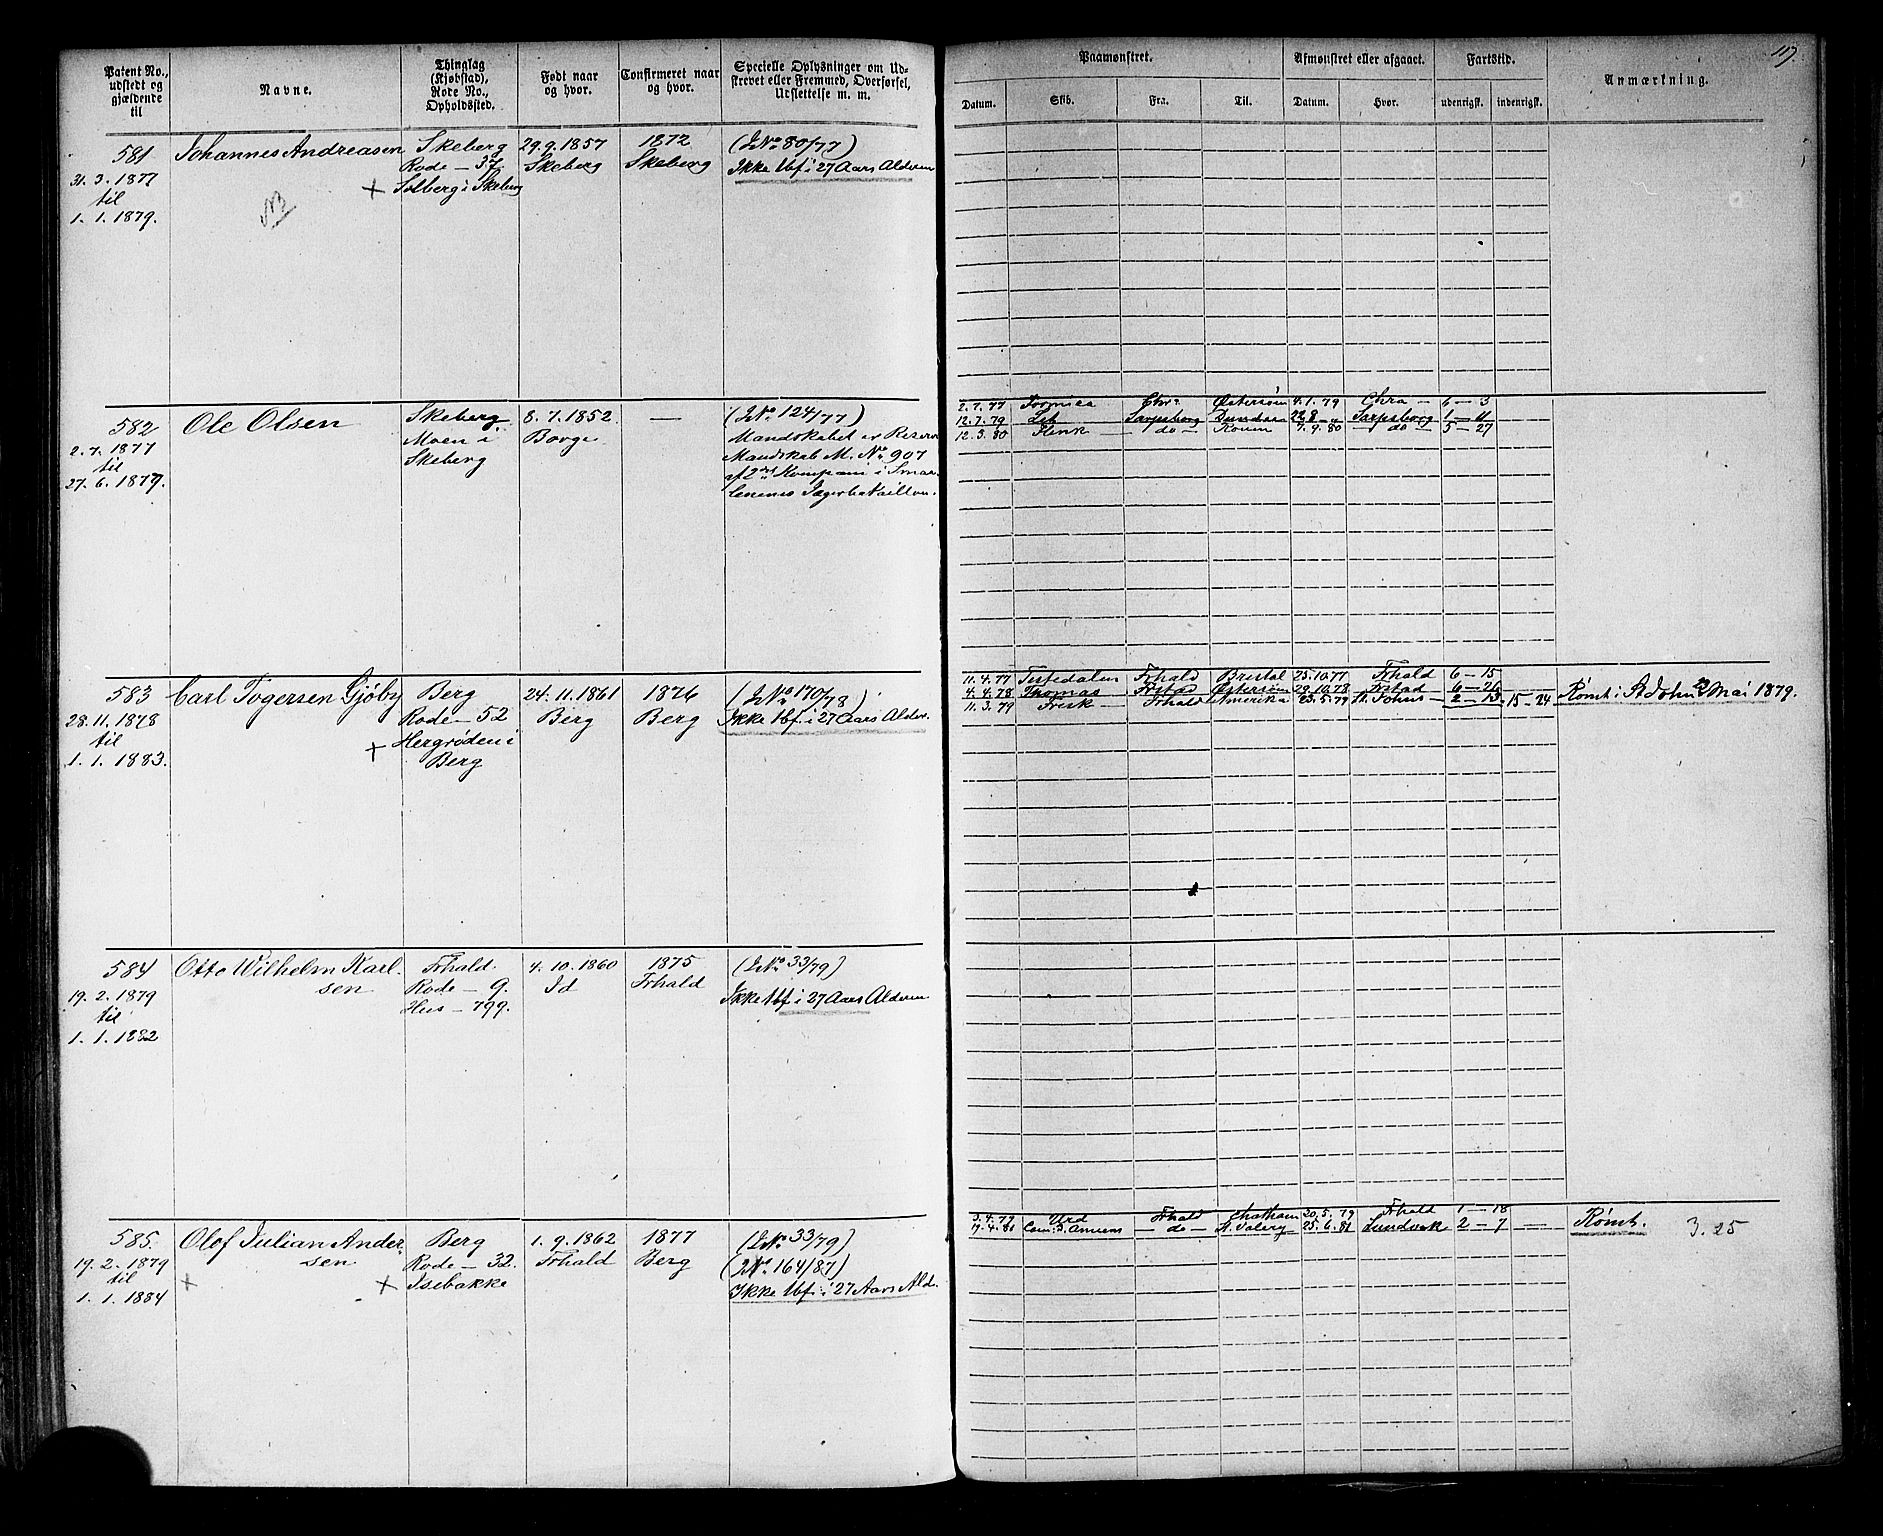 117.
Patent No., udstedt og gjældende til
Navne.
Thinglag (Kjøbstad), Rode No., Opholdssted.
Født naar og hvor.
Confirmeret naar og hvor.
Specielle Oplysninger om Udskrevet eller Fremmed, Overførsel, Udslettelse m. m.
Paamønstret.
Afmønstret eller afgaaet.
Fartstid.
Anmærkning.
Datum. Skib. Fra. Til. Datum. Hvor. udenrigsk. indenrigsk.
581 Johannes Andreasen Skeberg 29.9.1857 1872 (J.No 80/77)
31.3.1877 Rode — 37 Skeberg Skeberg Ikke Vbf i 27 Aars Alderen
til + Solberg i Skeberg
1.1.1879. NB
582 Ole Olsen Skeberg 8.7.1852 — (J.No 124/77)
2.7.1877 Moen i Borge Mandskabet er Reserve
til Skeberg Mandskab M. No 907
27.6.1879. af 2det Kompani i Smaa-
lenenes Jægerbataillon.
2.7.77 Chra Østersøen 4.1.79 Chra — 6 — 3
12.7.79 Sarpsborg 22.8 — „ Sarpsborg 1 — 11
12.3.80 — do — Rouen 7.9.80 — do — 5 — 27
583 Carl Togersen Gjøby Berg 24.11.1861 1876 (J.No 170/78)
28.11.1878 Rode — 52 Berg Berg Ikke Vbf i 27 Aars Alder.
til + Hergrøden i
1.1.1883. Berg
11.4.77 Tistedalen Frhald Bristol 25.10.77 Frhald 6 — 15
4.4.78 Thomas Frstad Østersøen 28.10.78 Frstad 6 — 26
11.3.79 Frisk — Frhald Amerika 23.5.79 St. Johns — 2 — 13 15 — 24 Rømt i St John 2 Mai 1879.
584 Otto Wilhelm Karl- Frhald. 4.10.1860 1875 (J.No 33/79)
19.2.1879 sen Rode — 9. Id Frhald Ikke Vbf i 27 Aars Alderen
til Hus — 799.
1.1.1882
585. Olof Julian Ander- Berg 1.9.1862 1877 (J.No 33/79)
19.2.1879 sen Rode — 32. Frhald Berg (J.No 164/87)
til + + Isebakke Ikke Vbf i 27 Aars Ald.
1.1.1884
3.4.79 Urd Frhald Chatham 20.5.79 Frhald 1 — 18
17.4.81 — do — St. Valery 25.6.81 2 — 7 — Rømt. 3.25